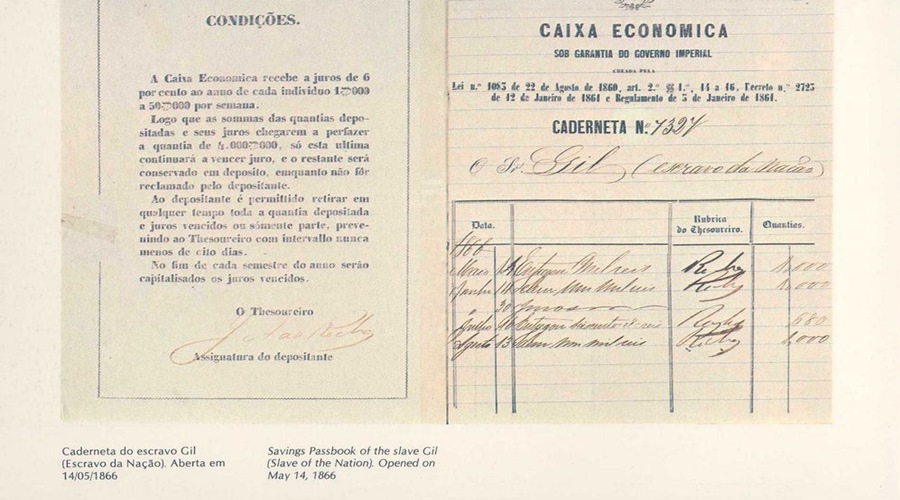 CONDIÇÕES.
A Caixa Economica recebe a juros de 6
por cento ao anno de cada individuo 1$000
a 50$000 por semana.
Logo que as sommas das quantias depo-
sitadas e seus juros chegarem a perfazer
a quantia de 4.000$000, só esta ultima
continuará a vencer juro, e o restante será
conservado em deposito, emquanto não fôr
reclamado pelo depositante.
Ao depositante é permittido retirar em
qualquer tempo toda a quantia depositada
e juros vencidos ou sómente parte, preve-
nindo ao Thesoureiro com intervallo nunca
menos de oito dias.
No fim de cada semestre do anno serão
capitalisados os juros vencidos.
O Thesoureiro
Assignatura do depositante
CAIXA ECONOMICA
SOB GARANTIA DO GOVERNO IMPERIAL
CREADA PELA
Lei n.º 1083 de 22 de Agosto de 1860, art. 2.º §§ 1.º, 14 a 16, Decreto n.º 2723
de 12 de Janeiro de 1861 e Regulamento de 5 de Janeiro de 1861.
CADERNETA N.º 7327
O Sr. Gil (escravo da Nação)
Data. Rubrica do Thesoureiro. Quantias.
1866
Maio 14
Junho
30 juros
Julho 680
Agosto 13
Caderneta do escravo Gil
(Escravo da Nação). Aberta em
14/05/1866
Savings Passbook of the slave Gil
(Slave of the Nation). Opened on
May 14, 1866